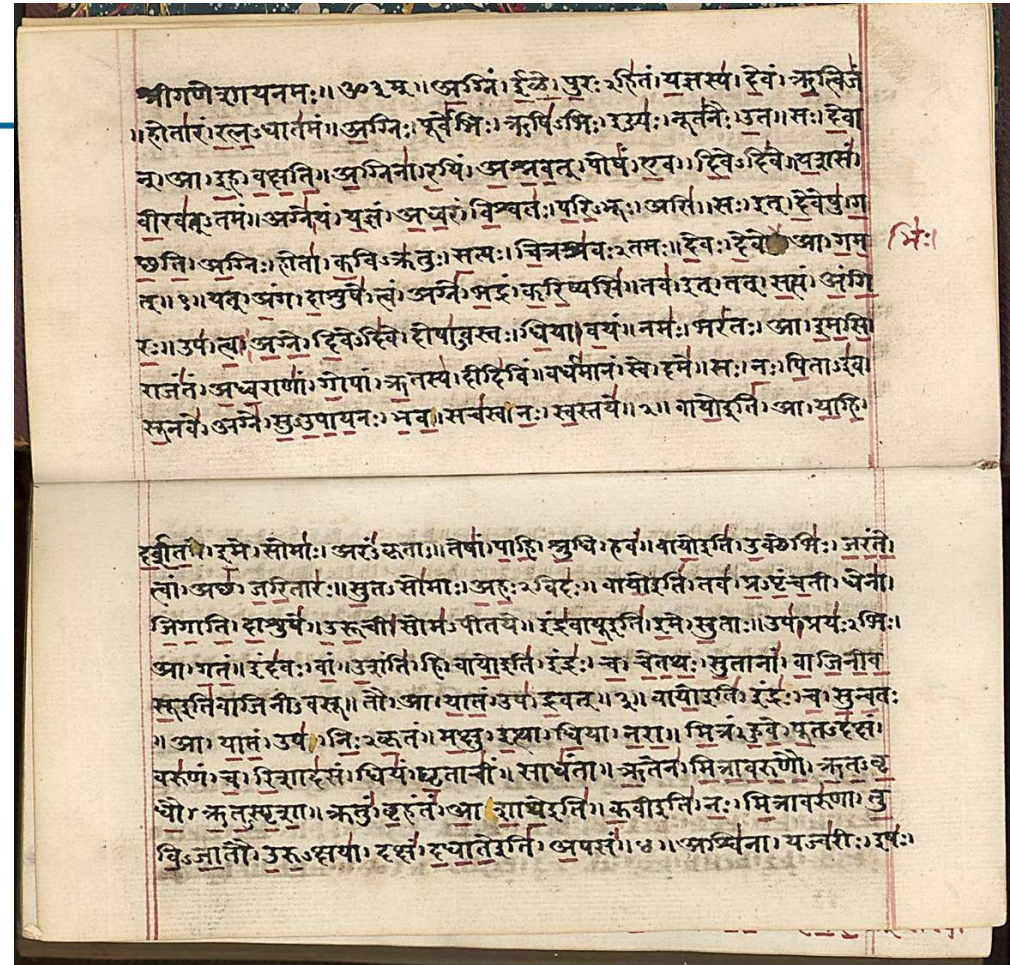 श्रीगणेशायनमः॥ॐ३म्॥अग्निं।ईळे।पुरःऽहितं।यज्ञस्य।देवं।ऋत्विजं
॥होतारं।रत्नऽधातमं॥अग्निः।पूर्वेभिः।ऋषिऽभिः।ईड्यः।नूतनैः।उत॥सः।देवा
न्।आ।इह।वक्षति॥अग्निना।रयिं।अश्नवत्।पोषं।एव।दिवेऽदिवे॥यशसं।
वीरवत्ऽतमं॥अग्ने।यं।यज्ञं।अध्वरं।विश्वतः।परिऽभूः।असि॥सः।इत्।देवेषु।ग
छति।अग्निः।होता।कविऽक्रतुः।सत्यः।चित्रश्रवःऽतमः॥देवः।देवे आ।गम
भिः।
त्॥१॥यत्।अंग।दाशुषे।त्वं।अग्ने।भद्रं।करिष्यसि॥तव।इत्।तत्।सत्यं।अंगि
रः॥उप।त्वा।अग्ने।दिवेऽदिवे।दोषाऽवस्तः।धिया।वयं॥नमः।भरंतः।आ।इमसि
राजंतं।अध्वराणां।गोपां।ऋतस्य।दीदिविं॥वर्धमानं।स्वे।दमे॥सः।नः।पिताऽइव।
सूनवे।अग्ने।सुऽउपायनः।भव॥सचस्व।नः।स्वस्तये॥२॥वायोइति।आ।याहि।
दर्शत।इमे।सोमाः।अरंऽकृताः॥तेषां।पाहि।श्रुधि।हवं॥वायोइति।उक्थेभिः।जरंते।
त्वां।अछ।जरितारः॥सुतऽसोमाः।अहःऽविदः॥वायोइति।तव।प्रऽपृंचती।धेना।
जिगाति।दाशुषे।उरूची।सोमऽपीतये॥इंद्रवायूइति।इमे।सुताः॥उप।प्रयःऽभिः।
आ।गतं॥इंदवः।वां।उशंति।हि।वायोइति।इंद्रः।च।चेतथः।सुतानां।वाजिनीव
सूइतिवाजिनीऽवसू॥तौ।आ।यातं।उप।द्रवत्॥३॥वायोइति।इंद्रः।च।सुन्वतः
॥आ।यातं।उप।निःऽकृतं॥मक्षु।इत्था।धिया।नरा॥मित्रं।हुवे।पूतऽदक्षं।
वरुणं।च।रिशादसं।धियं।घृताचीं॥साधंता॥ऋतेन।मित्रावरुणौ।ऋतऽवृ
धौ।ऋतऽस्पृशा॥क्रतुं।बृहंतं।आ।शाथेइति॥कवीइति।नः।मित्रावरुणा।तु
विऽजातौ।उरुऽक्षया।दक्षं।दधातेइति।अपसं॥४॥अश्विना।यज्वरीः।इषः।